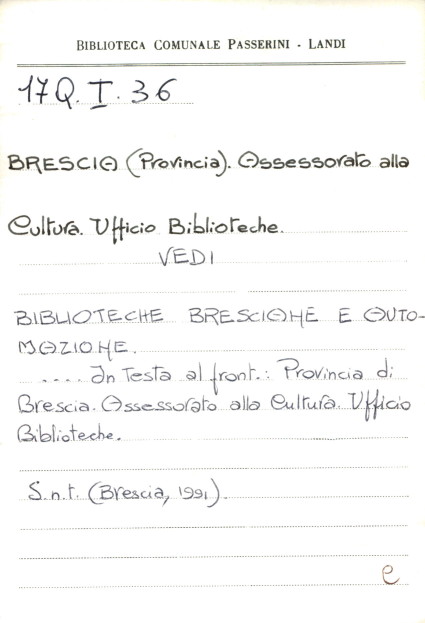 BIBLIOTECA COMUNALE PASSERINI - LANDI
17Q. I. 36
BRESCIA (Provincia). Assessorato alla
Cultura. Ufficio Biblioteche.
VEDI
BIBLIOTECHE BRESCIANE E AUTO-
MAZIONE.
.... In testa al front.: Provincia di
Brescia. Assessorato alla Cultura. Ufficio
Biblioteche.
S.n.t. (Brescia, 1991).
e